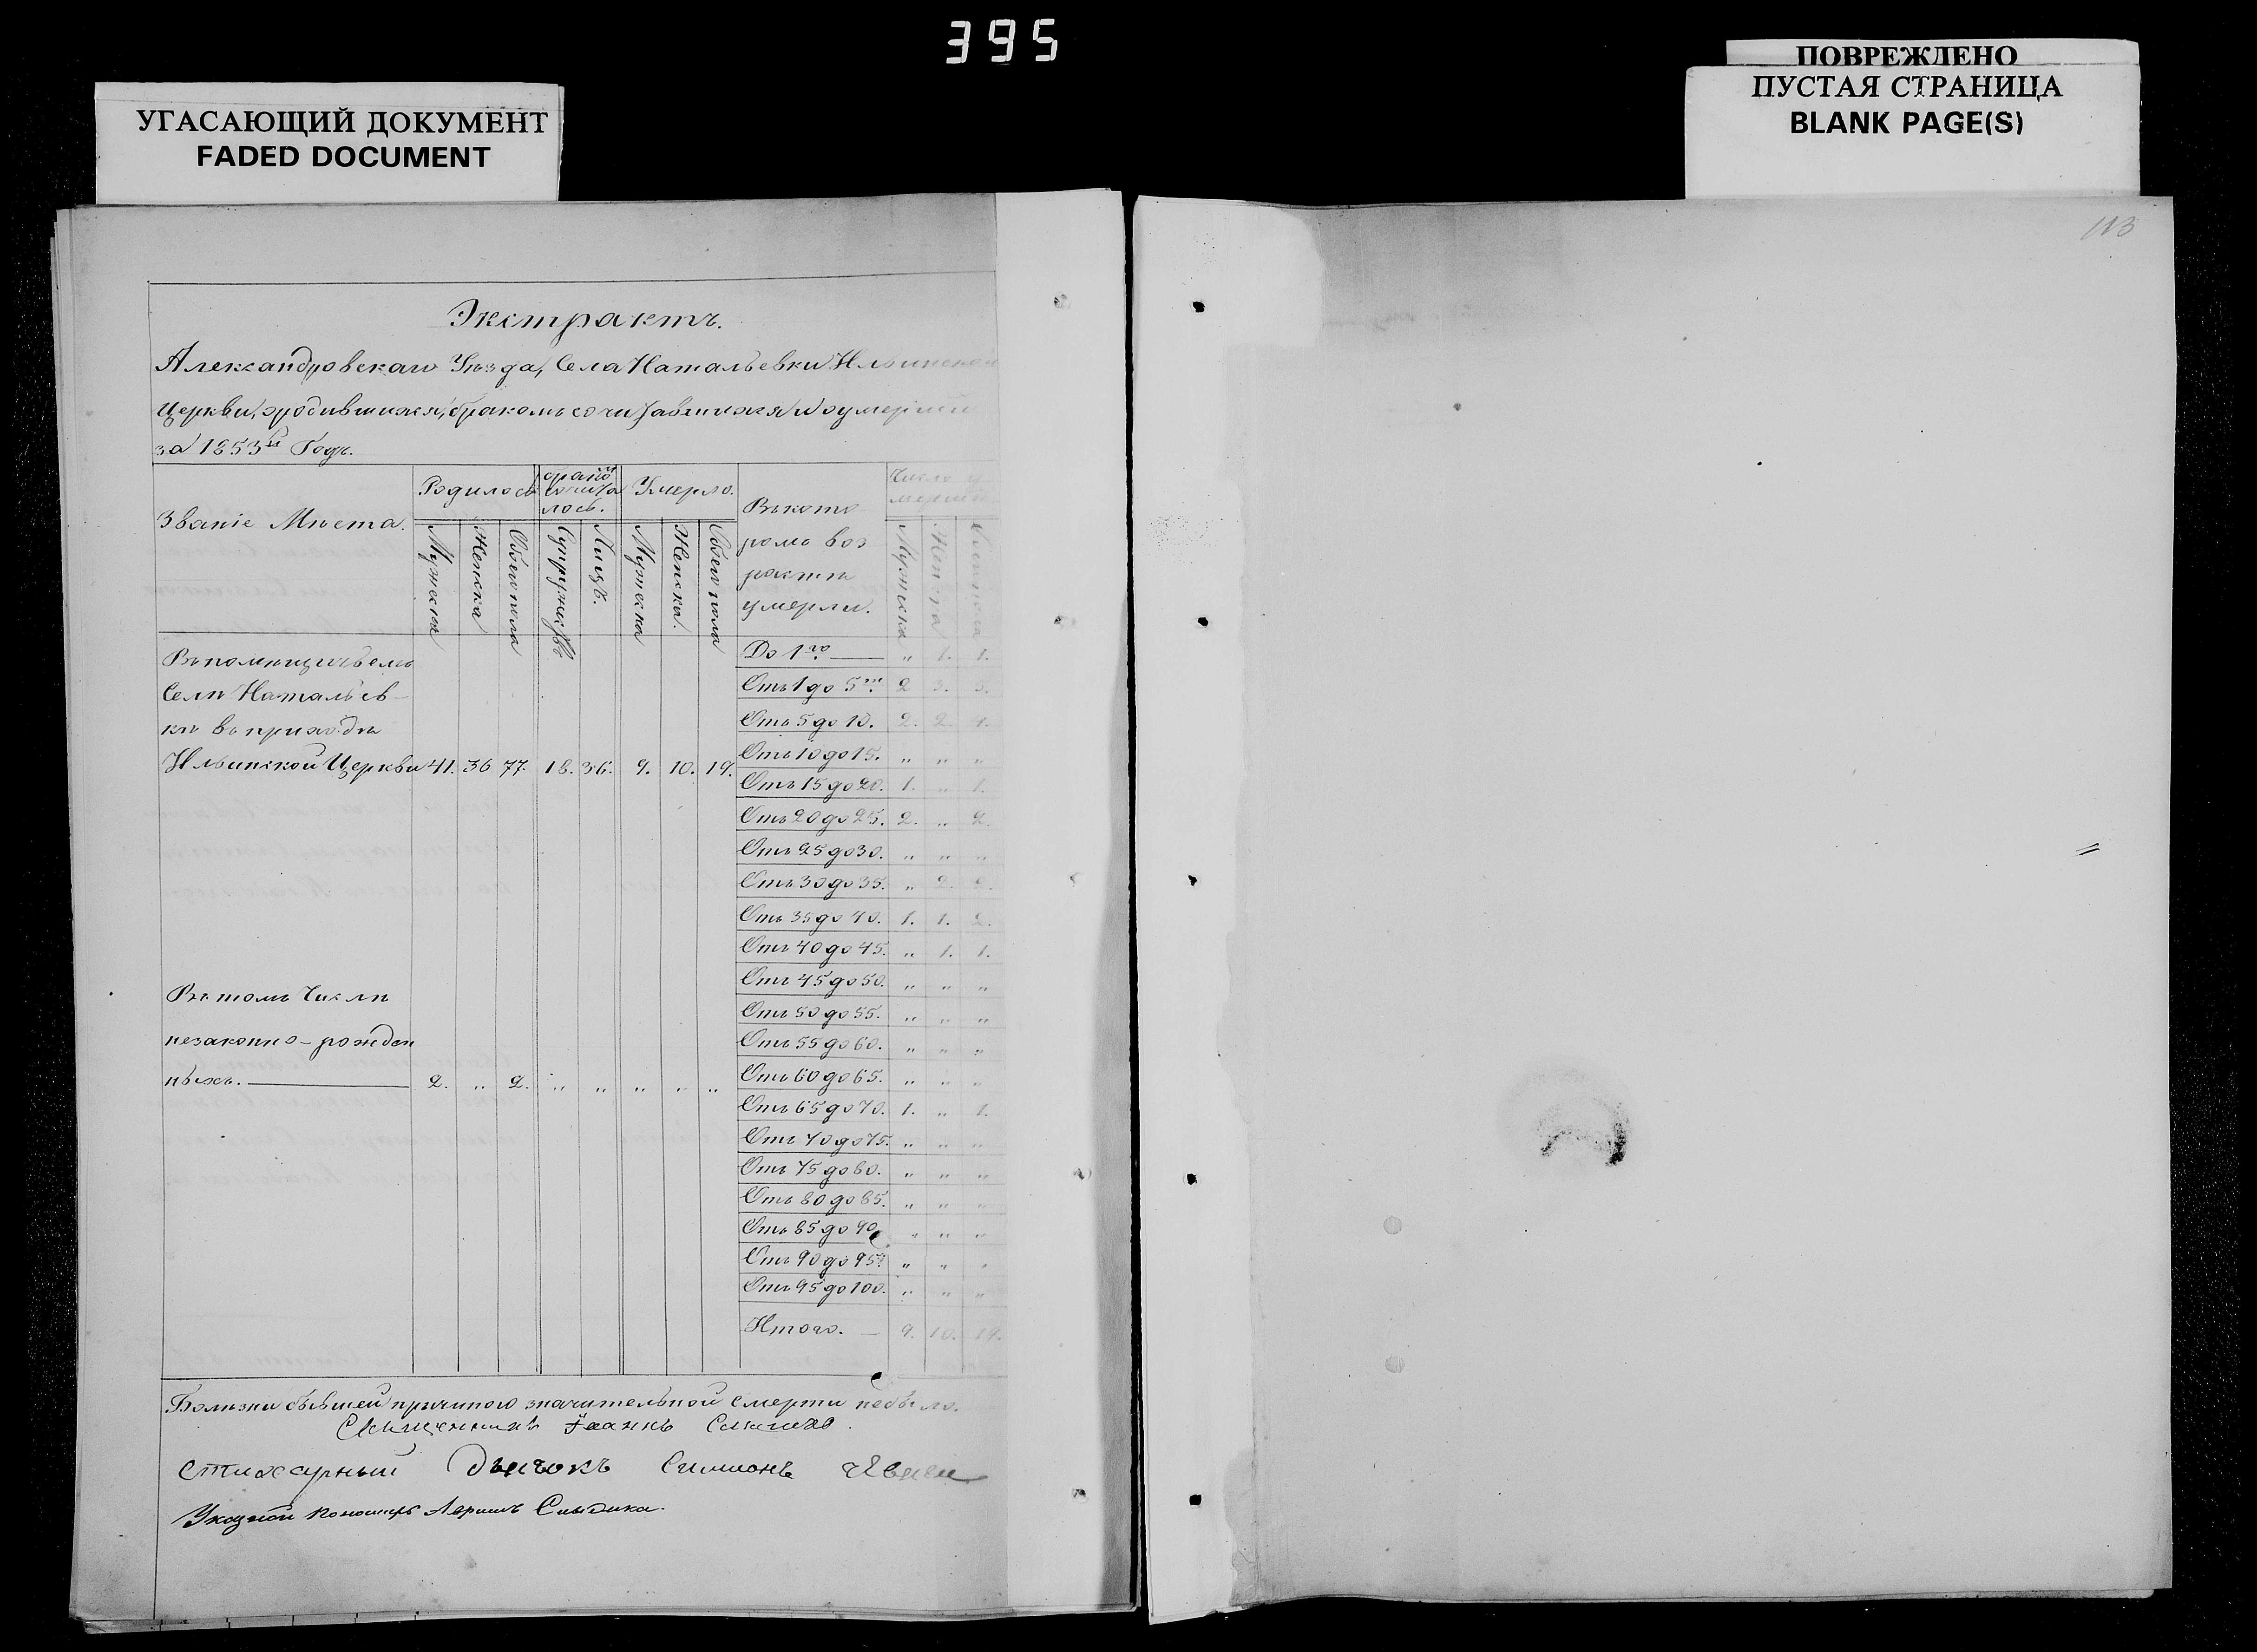 395
УГАСАЮЩИЙ ДОКУМЕНТ
FADED DOCUMENT
ПОВРЕЖДЕНО
ПУСТАЯ СТРАНИЦА
BLANK PAGE(S)
113
Экстрактъ.
Александровскаго Уѣзда, Села Натальевки Ильинской
Церкви,ородившихся, бракомъ сочитавшихся и оумершихъ
за 1853й Годъ.
Званіе Мѣста. Родилось бракомъ сочиталось. Умерло. Въ которомъ возрасте умерли. Число умершихъ
Мужеска Женска Обоего пола Супружествъ Лицъ. Мужеска Женска. Обоего пола Мужеска Женска
Въ помѣщичьемъ
Селѣ Натальев-
кѣ въ приходѣ
Ильинской Церкви 41. 36 77. 18. 36. 9. 10. 19.
Въ томъ Числѣ
незаконно-рожден
ныхъ. 2. „ 2. „ „ „ „ „
До 1го „ 1. 1.
Отъ 1 до 5ти 2 3. 5.
Отъ 5 до 10. 2. 2. 4.
Отъ 10 до 15. „ „ „
Отъ 15 до 20. 1. „ 1.
Отъ 20 до 25. 2. „ 2.
Отъ 25 до 30. „ „ „
Отъ 30 до 35. „ 2. 2.
Отъ 35 до 40. 1. 1. 2.
Отъ 40 до 45. „ 1. 1.
Отъ 45 до 50. „ „ „
Отъ 50 до 55. „ „ „
Отъ 55 до 60. „ „ „
Отъ 60 до 65. „ „ „
Отъ 65 до 70. 1. „ 1.
Отъ 70 до 75. „ „ „
Отъ 75 до 80. „ „ „
Отъ 80 до 85. „ „ „
Отъ 85 до 90 „ „ „
Отъ 90 до 95. „ „ „
Отъ 95 до 100. „ „ „
Итого. — 9. 10. 19.
Болезни бывшей причиною значительной смерти небыло.
Священникъ Іоаннъ
Стихарный Дьячокъ Симионъ
Указной Пономарь